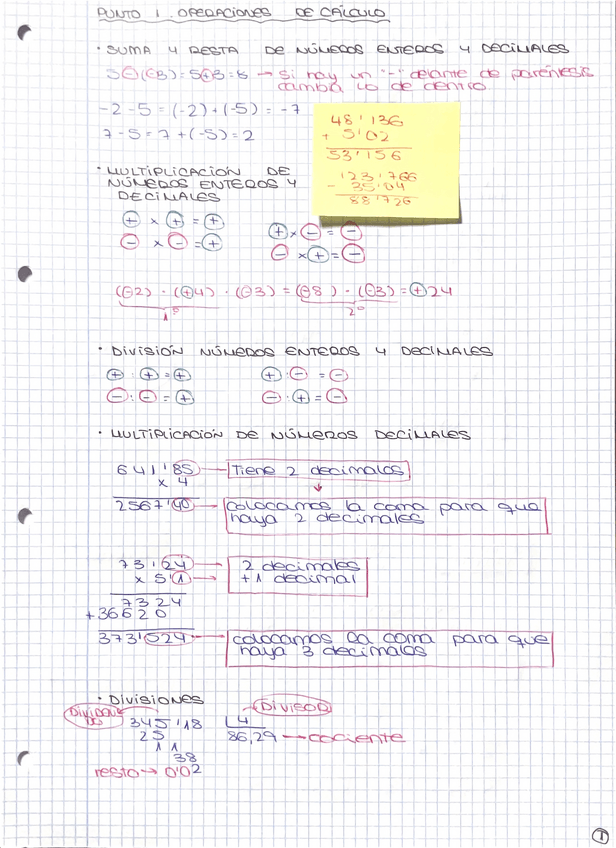 PUNTO 1. OPERACIONES DE CÁLCULO
· SUMA Y RESTA DE NÚMEROS ENTEROS Y DECIMALES
3-(-3)=5+3=8 → si hay un "-" delante de paréntesis
cambia lo de dentro
-2-5=(-2)+(-5)=-7
7-5=7+(-5)=2
48'136
+ 5'02
53'156
123'766
- 35'04
88'726
· MULTIPLICACIÓN DE
NÚMEROS ENTEROS Y
DECIMALES
+ x + = +
- x - = +
+ x - = -
- x + = -
(-2) · (+4) · (-3) = (-8) · (-3) = +24
1º
2º
· DIVISIÓN NÚMEROS ENTEROS Y DECIMALES
+ : + = +
- : - = +
+ : - = -
- : + = -
· MULTIPLICACIÓN DE NÚMEROS DECIMALES
641'85 → Tiene 2 decimales
x 4
2567'40 → colocamos la coma para que
haya 2 decimales
73'24 → 2 decimales
x 5'1 → +1 decimal
7324
+36620
373'524 → colocamos la coma para que
haya 3 decimales
· DIVISIONES
DIVIDENDO
DIVISOR
345'18 4
25 86,29 → cociente
11
38
resto → 0'02
1